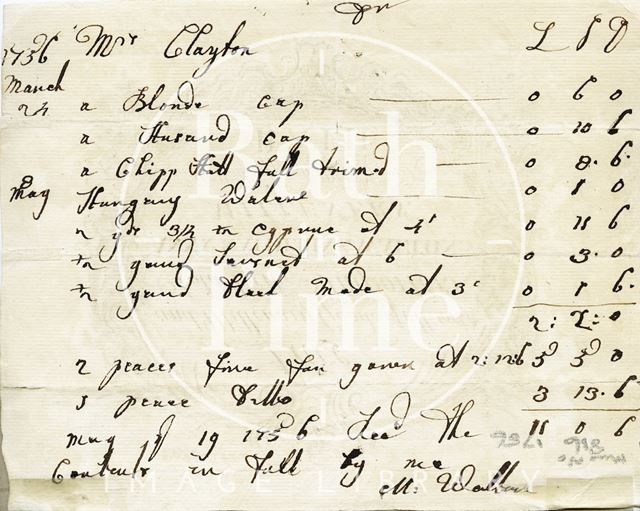 Dr
1736 Mrs Clayton L S D
March
24 a Blonde Cap 0 6 0
a Husard cap 0 10 6
a Chipp Hatt full trimed 0 8. 6.
May Hungary Watter 0 1 0
2 yds 3/4 cypruse at 4s 0 11 6
yard Sarsnet at 6 0 3. 0
yard Black Mode at 3s 0 1 6.
2: 2: 0
2 peaces fine gown at 2: 12: 6 5 5 0
1 peace Ditto 3 13. 6
May ye 19 1736 Reed the 11 0 6
Contents in full by me
M: Wallbank
Bath in Time
IMAGE LIBRARY